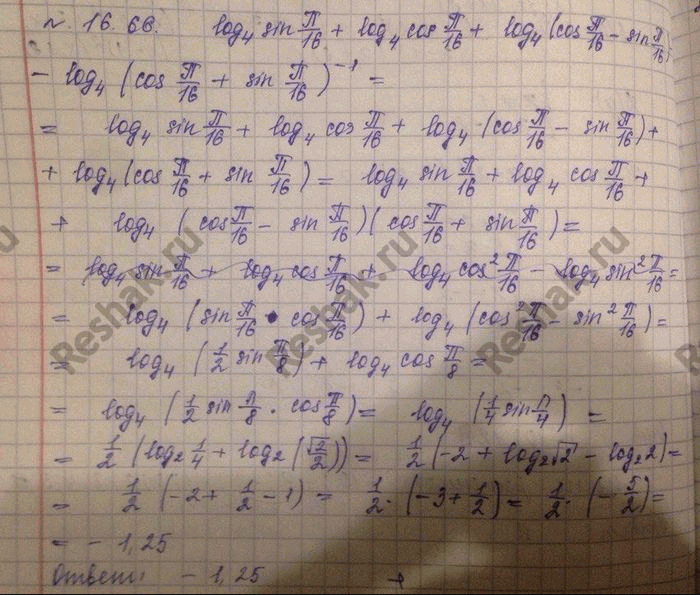 № 16.6в. log₄ sin π/16 + log₄ cos π/16 + log₄ (cos π/16 - sin π/16)
- log₄ (cos π/16 + sin π/16)⁻¹ =
= log₄ sin π/16 + log₄ cos π/16 + log₄ (cos π/16 - sin π/16) +
+ log₄ (cos π/16 + sin π/16) = log₄ sin π/16 + log₄ cos π/16 +
+ log₄ (cos π/16 - sin π/16)(cos π/16 + sin π/16) =
= log₄ sin π/16 + log₄ cos π/16 + log₄ cos² π/16 - log₄ sin² π/16 =
= log₄ (sin π/16 · cos π/16) + log₄ (cos² π/16 - sin² π/16) =
= log₄ (1/2 sin π/8) + log₄ cos π/8 =
= log₄ (1/2 sin π/8 · cos π/8) = log₄ (1/4 sin π/4) =
= 1/2 (log₂ 1/4 + log₂ (√2/2)) = 1/2 (-2 + log₂ √2 - log₂ 2) =
= 1/2 (-2 + 1/2 - 1) = 1/2 · (-3 + 1/2) = 1/2 · (- 5/2) =
= - 1,25
Ответ: - 1,25 +
Reshak.ru
Reshak.ru
Reshak.ru